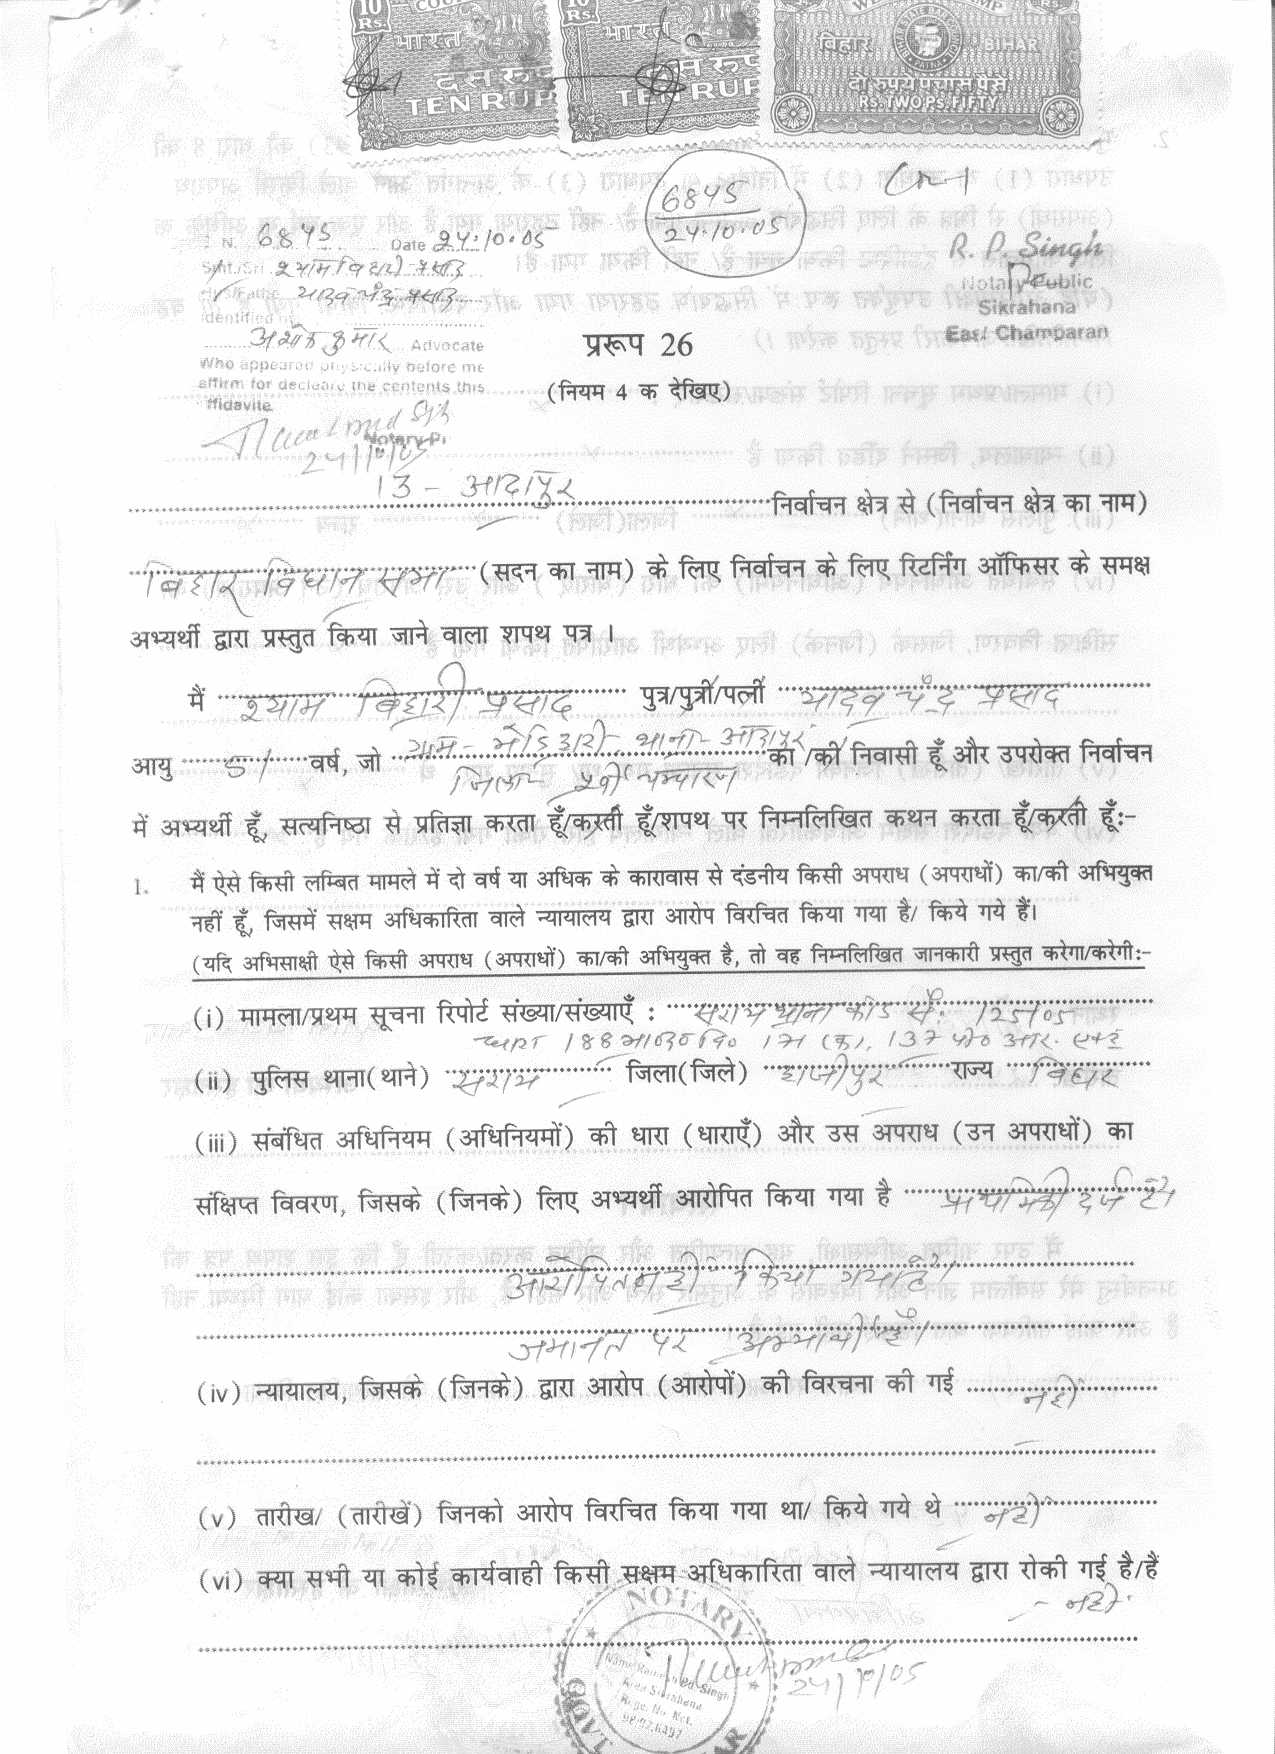 10 Rs.
भारत
दस रुप
TEN RUP
भारत
दस रुप
TEN RUP
बिहार BIHAR
दो रुपये पचास पैसे
RS.TWO PS.FIFTY
6845
24.10.05
N. 6845 Date 24.10.05
श्याम बिहारी प्रसाद
यादव चंद्र प्रसाद
Identified
अशोक कुमार Advocate
Who appeared physically before me
affirm for decleare the contents this
ffidavite
Notary P
24/10/05
R. P. Singh
Notary Public
Sikrahana
East Champaran
प्ररूप 26
(नियम 4 क देखिए)
13 - आदापुर निर्वाचन क्षेत्र से (निर्वाचन क्षेत्र का नाम)
बिहार विधान सभा (सदन का नाम) के लिए निर्वाचन के लिए रिटर्निंग ऑफिसर के समक्ष
अभ्यर्थी द्वारा प्रस्तुत किया जाने वाला शपथ पत्र ।
मैं श्याम बिहारी प्रसाद पुत्र/पुत्री/पत्नी यादव चंद्र प्रसाद
आयु 51 वर्ष, जो ग्राम- भेड़िहारी, थाना- आदापुर का /की निवासी हूँ और उपरोक्त निर्वाचन
जिला- पूर्वी चम्पारण
में अभ्यर्थी हूँ, सत्यनिष्ठा से प्रतिज्ञा करता हूँ/करती हूँ/शपथ पर निम्नलिखित कथन करता हूँ/करती हूँ:-
1. मैं ऐसे किसी लम्बित मामले में दो वर्ष या अधिक के कारावास से दंडनीय किसी अपराध (अपराधों) का/की अभियुक्त
नहीं हूँ, जिसमें सक्षम अधिकारिता वाले न्यायालय द्वारा आरोप विरचित किया गया है/ किये गये हैं।
(यदि अभिसाक्षी ऐसे किसी अपराध (अपराधों) का/की अभियुक्त है, तो वह निम्नलिखित जानकारी प्रस्तुत करेगा/करेगी:-
(i) मामला/प्रथम सूचना रिपोर्ट संख्या/संख्याएँ : सराय थाना कांड सं. 125/05
धारा 188 भा०द०वि० 171 (क), 137 पी० आर. एक्ट
(ii) पुलिस थाना(थाने) सराय जिला(जिले) हाजीपुर राज्य बिहार
(iii) संबंधित अधिनियम (अधिनियमों) की धारा (धाराएँ) और उस अपराध (उन अपराधों) का
संक्षिप्त विवरण, जिसके (जिनके) लिए अभ्यर्थी आरोपित किया गया है प्राथमिकी दर्ज है।
आरोपित नहीं किया गया है।
जमानत पर अभ्यार्थी हूँ।
(iv) न्यायालय, जिसके (जिनके) द्वारा आरोप (आरोपों) की विरचना की गई नहीं
(v) तारीख/ (तारीखें) जिनको आरोप विरचित किया गया था/ किये गये थे नहीं
(vi) क्या सभी या कोई कार्यवाही किसी सक्षम अधिकारिता वाले न्यायालय द्वारा रोकी गई है/हैं
- नहीं
NOTARY
24/10/05
GOVT.